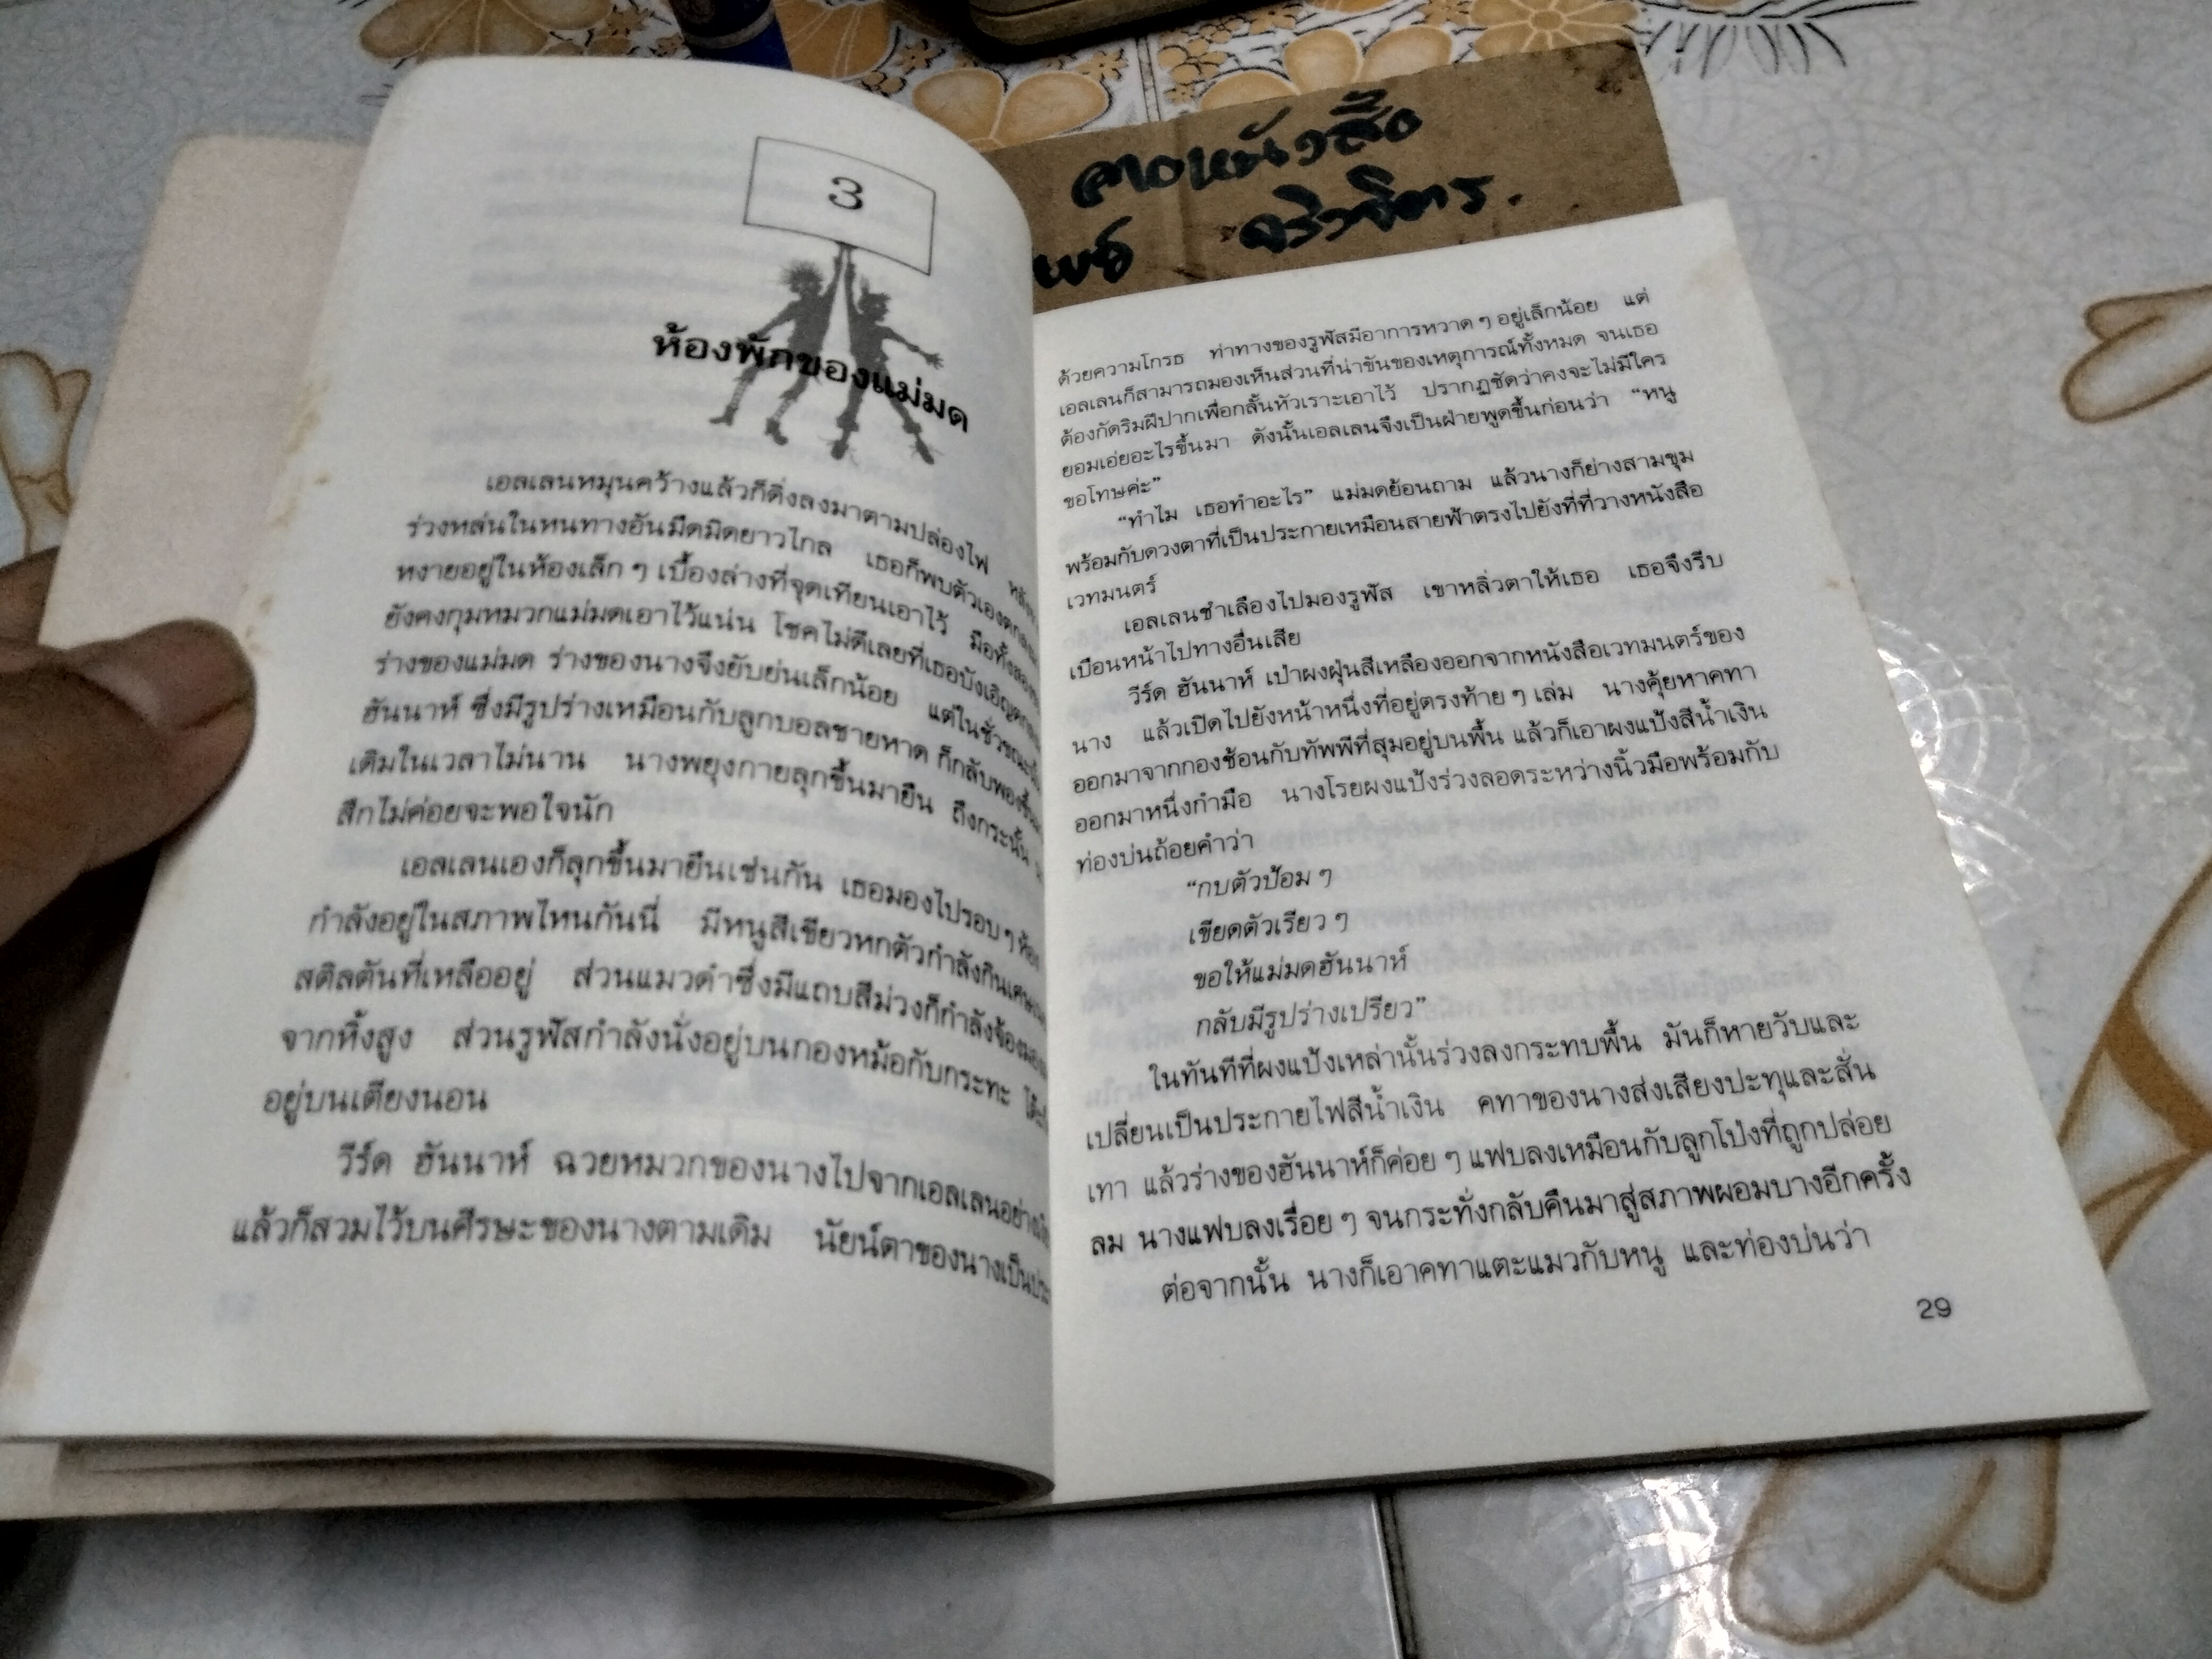 ลาดหนังสือ
จริงจิตร.
3
ห้องพักของแม่มด
เอลเลนหมุนคว้างแล้วก็ดิ่งลงมาตามปล่องไฟ
ร่วงหล่นในหนทางอันมืดมิดยาวไกล เธอก็พบตัวเอง
หงายอยู่ในห้องเล็ก ๆ เบื้องล่างที่จุดเทียนเอาไว้ มือทั้งสอง
ยังคงกุมหมวกแม่มดเอาไว้แน่น โชคไม่ดีเลยที่เธอบังเอิญ
ร่างของแม่มด ร่างของนางจึงยับย่นเล็กน้อย แต่ในชั่วขณะ
ฮันนาห์ ซึ่งมีรูปร่างเหมือนกับลูกบอลชายหาด ก็กลับพองขึ้น
เดิมในเวลาไม่นาน นางพยุงกายลุกขึ้นมายืน ถึงกระนั้น
สึกไม่ค่อยจะพอใจนัก
เอลเลนเองก็ลุกขึ้นมายืนเช่นกัน เธอมองไปรอบ ๆ ห้อง
กำลังอยู่ในสภาพไหนกันนี่ มีหนูสีเขียวหกตัวกำลังกินเศษ
สติลตันที่เหลืออยู่ ส่วนแมวดำซึ่งมีแถบสีม่วงก็กำลังจ้อง
จากหิ้งสูง ส่วนรูฟัสกำลังนั่งอยู่บนกองหม้อกับกระทะ
อยู่บนเตียงนอน
วีร์ด ฮันนาห์ ฉวยหมวกของนางไปจากเอลเลนอย่าง
แล้วก็สวมไว้บนศีรษะของนางตามเดิม นัยน์ตาของนางเป็น
ด้วยความโกรธ ท่าทางของรูฟัสมีอาการหวาด ๆ อยู่เล็กน้อย แต่
เอลเลนก็สามารถมองเห็นส่วนที่น่าขันของเหตุการณ์ทั้งหมด จนเธอ
ต้องกัดริมฝีปากเพื่อกลั้นหัวเราะเอาไว้ ปรากฏชัดว่าคงจะไม่มีใคร
ยอมเอ่ยอะไรขึ้นมา ดังนั้นเอลเลนจึงเป็นฝ่ายพูดขึ้นก่อนว่า “หนู
ขอโทษค่ะ”
“ทำไม เธอทำอะไร” แม่มดย้อนถาม แล้วนางก็ย่างสามขุม
พร้อมกับดวงตาที่เป็นประกายเหมือนสายฟ้าตรงไปยังที่ที่วางหนังสือ
เวทมนตร์
เอลเลนชำเลืองไปมองรูฟัส เขาหลิ่วตาให้เธอ เธอจึงรีบ
เบือนหน้าไปทางอื่นเสีย
วีร์ด ฮันนาห์ เป่าผงฝุ่นสีเหลืองออกจากหนังสือเวทมนตร์ของ
นาง แล้วเปิดไปยังหน้าหนึ่งที่อยู่ตรงท้าย ๆ เล่ม นางคุ้ยหาคทา
ออกมาจากกองช้อนกับทัพพีที่สุมอยู่บนพื้น แล้วก็เอาผงแป้งสีน้ำเงิน
ออกมาหนึ่งกำมือ นางโรยผงแป้งร่วงลอดระหว่างนิ้วมือพร้อมกับ
ท่องบ่นถ้อยคำว่า
“กบตัวป้อม ๆ
เขียดตัวเรียว ๆ
ขอให้แม่มดฮันนาห์
กลับมีรูปร่างเปรียว”
ในทันทีที่ผงแป้งเหล่านั้นร่วงลงกระทบพื้น มันก็หายวับและ
เปลี่ยนเป็นประกายไฟสีน้ำเงิน คทาของนางส่งเสียงปะทุและสั่น
เทา แล้วร่างของฮันนาห์ก็ค่อย ๆ แฟบลงเหมือนกับลูกโป่งที่ถูกปล่อย
ลม นางแฟบลงเรื่อย ๆ จนกระทั่งกลับคืนมาสู่สภาพผอมบางอีกครั้ง
ต่อจากนั้น นางก็เอาคทาแตะแมวกับหนู และท่องบ่นว่า
29